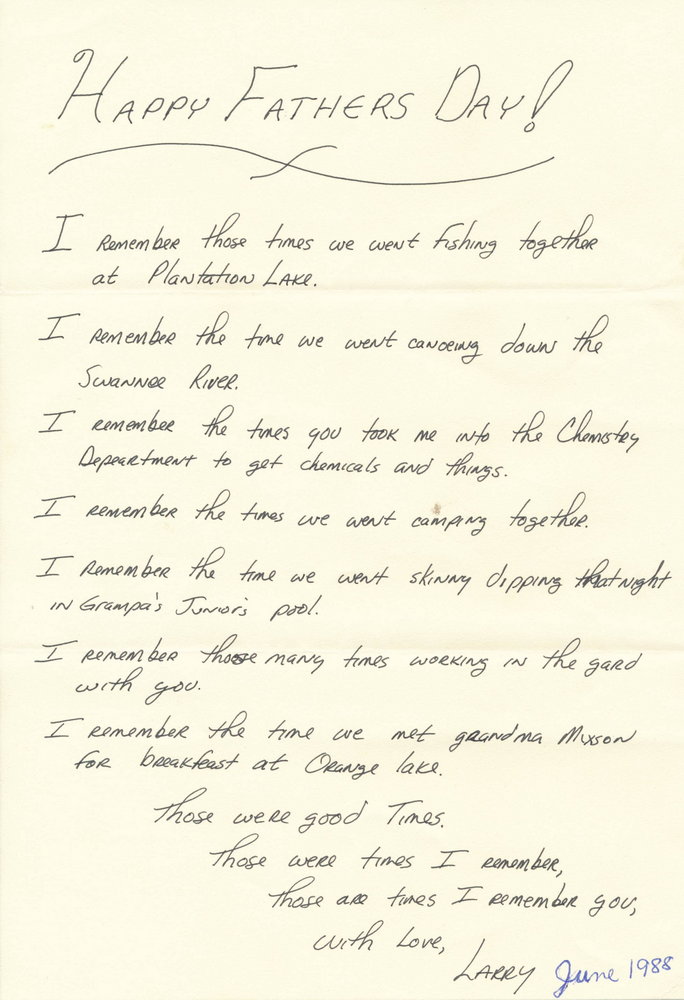 Happy Fathers Day!
I remember those times we went fishing together
at Plantation Lake.
I remember the time we went canoeing down the
Swannee River.
I remember the times you took me into the Chemistry
Depeartment to get chemicals and things.
I remember the times we went camping together.
I remember the time we went skinny dipping that night
in Grampa's Junior's pool.
I remember those many times working in the gard
with you.
I remember the time we met grandma Mixson
for breakfeast at Orange lake.
Those were good Times.
Those were times I remember,
Those are times I remember you,
with Love,
Larry June 1988